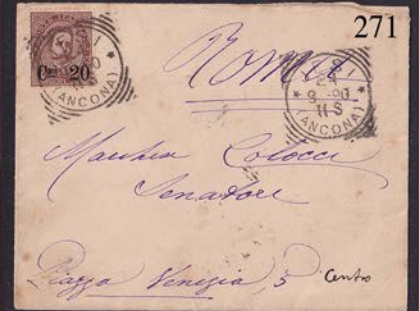 271
Roma
Cmi 20
(ANCONA)
9-90
11 S
(ANCONA)
Marchese Colocci
Senatore
Piazza Venezia, 5 Centro